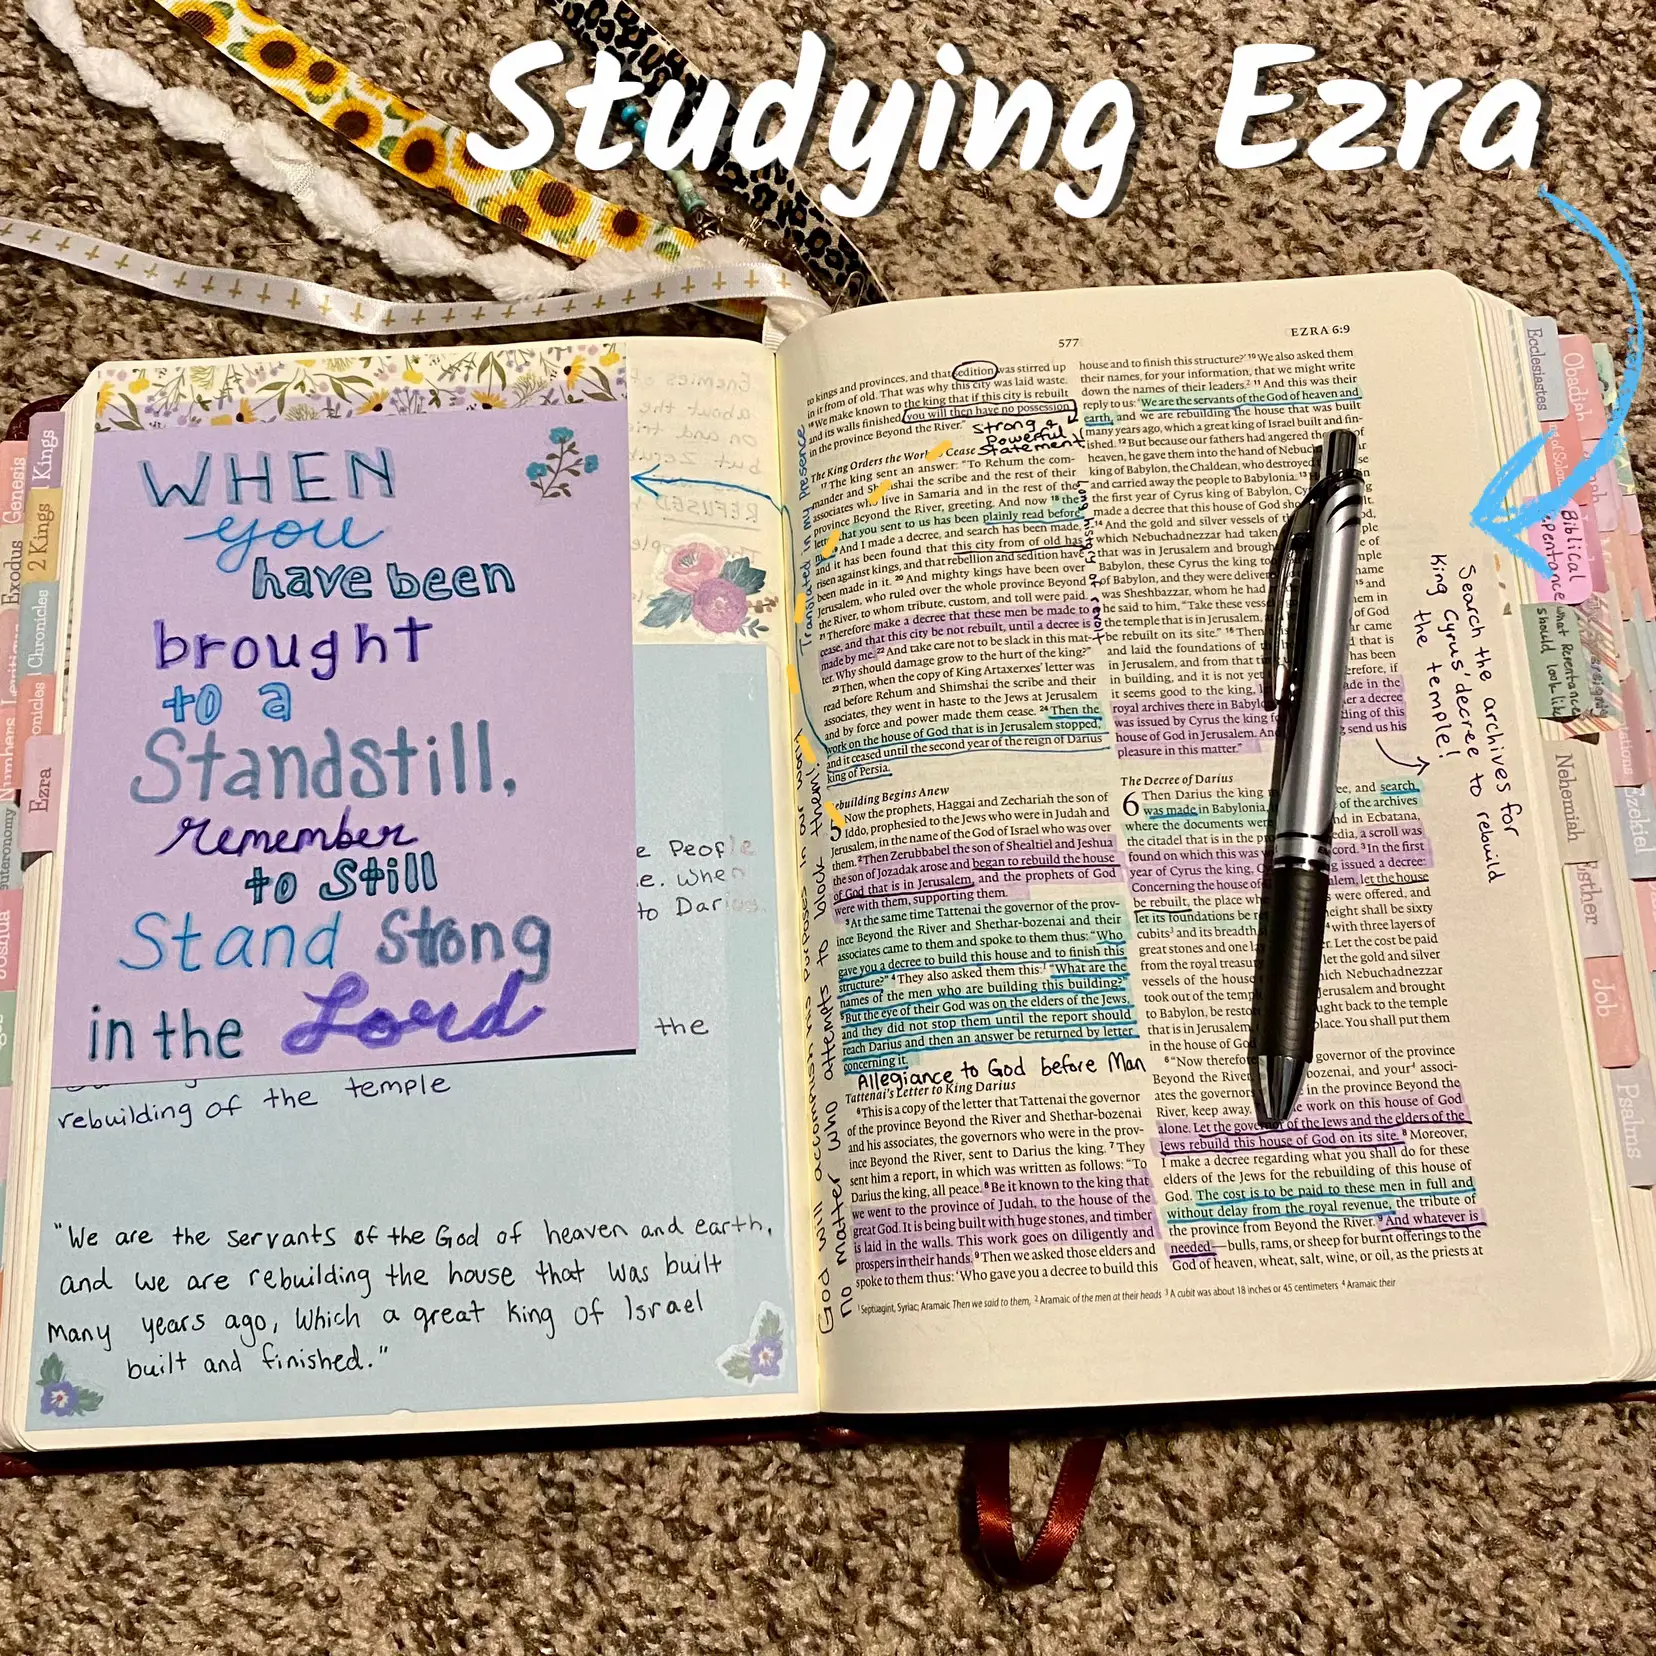 Studying Ezra
WHEN
you
have been
brought
to a
Standstill,
remember
to still
Stand Strong
in the Lord
e People
e. When
to Darius
the
rebuilding of the temple
"We are the servants of the God of heaven and earth,
and we are rebuilding the house that was built
many years ago, which a great king of Israel
built and finished."
Genesis
Exodus
Numbers
Joshua
Kings
2 Kings
Chronicles
Ezra
577
EZRA 6:9
to kings and provinces, and that sedition was stirred up
in it from of old. That was why this city was laid waste.
16 We make known to the king that if this city is rebuilt
and its walls finished, you will then have no possession
in the province Beyond the River."
Strong &
Powerful
Statement
The King Orders the Work Cease
17 The king sent an answer: "To Rehum the com-
mander and Shimshai the scribe and the rest of their
associates who live in Samaria and in the rest of the
province Beyond the River, greeting. And now 18 the
letter that you sent to us has been plainly read before
19 And I made a decree, and search has been made,
and it has been found that this city from of old has
risen against kings, and that rebellion and sedition have
been made in it. 20 And mighty kings have been over
Jerusalem, who ruled over the whole province Beyond
the River, to whom tribute, custom, and toll were paid.
21 Therefore make a decree that these men be made to
cease, and that this city be not rebuilt, until a decree is
made by me. 22 And take care not to be slack in this mat-
ter. Why should damage grow to the hurt of the king?"
23 Then, when the copy of King Artaxerxes' letter was
read before Rehum and Shimshai the scribe and their
associates, they went in haste to the Jews at Jerusalem
and by force and power made them cease. 24 Then the
work on the house of God that is in Jerusalem stopped,
and it ceased until the second year of the reign of Darius
king of Persia.
Rebuilding Begins Anew
5 Now the prophets, Haggai and Zechariah the son of
Iddo, prophesied to the Jews who were in Judah and
Jerusalem, in the name of the God of Israel who was over
them. 2 Then Zerubbabel the son of Shealtiel and Jeshua
the son of Jozadak arose and began to rebuild the house
of God that is in Jerusalem, and the prophets of God
were with them, supporting them.
3 At the same time Tattenai the governor of the prov-
ince Beyond the River and Shethar-bozenai and their
associates came to them and spoke to them thus: "Who
gave you a decree to build this house and to finish this
structure?" 4 They also asked them this: 1 "What are the
names of the men who are building this building?"
5 But the eye of their God was on the elders of the Jews,
and they did not stop them until the report should
reach Darius and then an answer be returned by letter
concerning it.
Allegiance to God before Man
Tattenai's Letter to King Darius
6 This is a copy of the letter that Tattenai the governor
of the province Beyond the River and Shethar-bozenai
and his associates, the governors who were in the prov-
ince Beyond the River, sent to Darius the king. 7 They
sent him a report, in which was written as follows: "To
Darius the king, all peace. 8 Be it known to the king that
we went to the province of Judah, to the house of the
great God. It is being built with huge stones, and timber
is laid in the walls. This work goes on diligently and
prospers in their hands. 9 Then we asked those elders and
spoke to them thus: 'Who gave you a decree to build this
house and to finish this structure?' 10 We also asked them
their names, for your information, that we might write
down the names of their leaders. 2 11 And this was their
reply to us: 'We are the servants of the God of heaven and
earth, and we are rebuilding the house that was built
many years ago, which a great king of Israel built and fin-
ished. 12 But because our fathers had angered the of
heaven, he gave them into the hand of Nebuch
king of Babylon, the Chaldean, who destroyed
and carried away the people to Babylonia. 13
the first year of Cyrus king of Babylon,
made a decree that this house of God
14 And the gold and silver vessels of
which Nebuchadnezzar had taken
that was in Jerusalem and brough
Babylon, these Cyrus the king
of Babylon, and they were deliver
was Sheshbazzar, whom he had
he said to him, "Take these vess
the temple that is in Jerusalem,
be rebuilt on its site." 16 Then
and laid the foundations of
in Jerusalem, and from that
in building, and it is not yet
it seems good to the king,
royal archives there in Babylo
was issued by Cyrus the king
house of God in Jerusalem. And send us his
pleasure in this matter."
The Decree of Darius
6 Then Darius the king ee, and search
was made in Babylonia, of the archives
where the documents were nd in Ecbatana,
the citadel that is in the pro edia, a scroll was
found on which this was cord. 3 In the first
year of Cyrus the king, issued a decree:
Concerning the house of let the house
be rebuilt, the place were offered, and
let its foundations be re height shall be sixty
cubits 3 and its breadth 4 with three layers of
great stones and one r. Let the cost be paid
from the royal treasury let the gold and silver
vessels of the house hich Nebuchadnezzar
took out of the temp Jerusalem and brought
to Babylon, be resto ught back to the temple
that is in Jerusalem, place. You shall put them
in the house of God
6 "Now therefore governor of the province
Beyond the River, bozenai, and your 4 associ-
ates the governors in the province Beyond the
River, keep away. e work on this house of God
alone. Let the governor of the Jews and the elders of the
Jews rebuild this house of God on its site. 8 Moreover,
I make a decree regarding what you shall do for these
elders of the Jews for the rebuilding of this house of
God. The cost is to be paid to these men in full and
without delay from the royal revenue, the tribute of
the province from Beyond the River. 9 And whatever is
needed—bulls, rams, or sheep for burnt offerings to the
God of heaven, wheat, salt, wine, or oil, as the priests at
1 Septuagint, Syriac; Aramaic Then we said to them, 2 Aramaic of the men at their heads 3 A cubit was about 18 inches or 45 centimeters 4 Aramaic their
Translated in my presence
long history of revolt
God will accomplish his purposes in our world
no matter who attempts to block them!
Search the archives for
King Cyrus' decree to rebuild
the temple!
Ecclesiastes
Obadiah
Biblical
Repentance
what Repentance
should look like
Nehemiah
Esther
Job
Psalms
Ezekiel